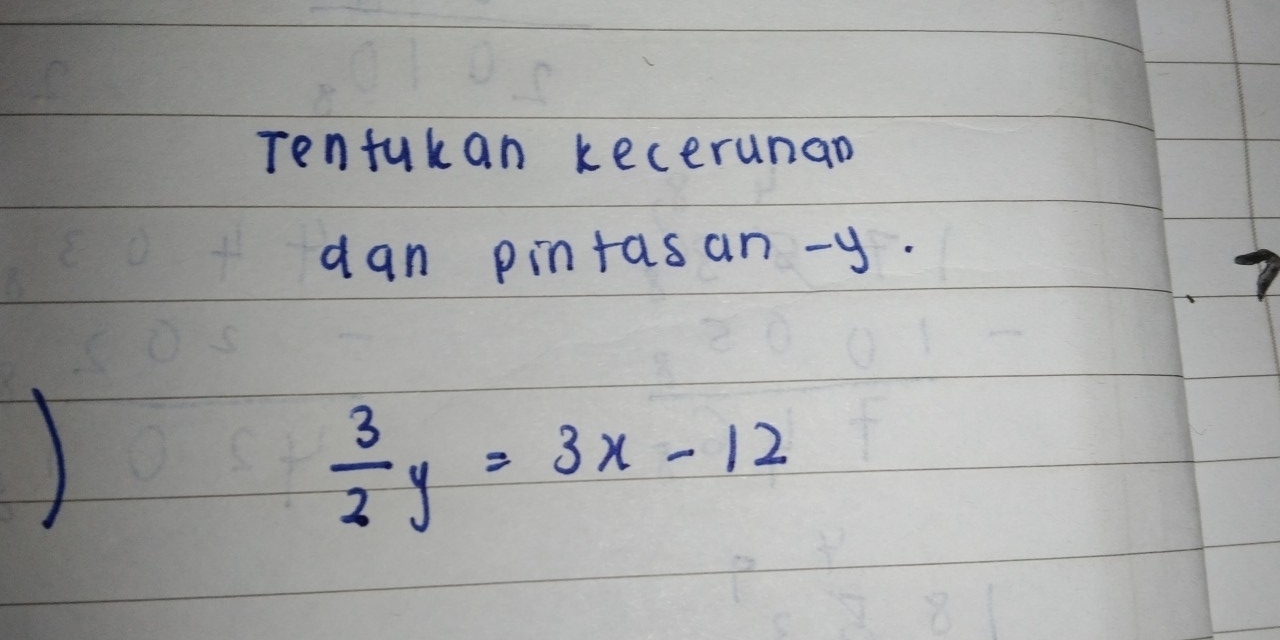 Tentukan kecerunan
dan pintasan -y.
) 3/2 y = 3x - 12